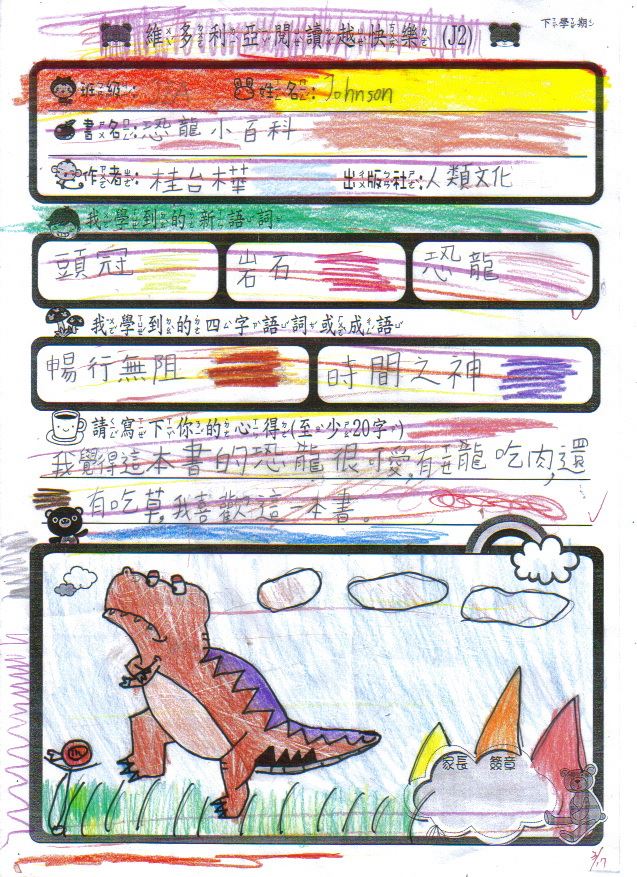 維多利亞閱讀越快樂 (J2)
下學期
班級: 姓名: Johnson
書名: 恐龍小百科
作者: 桂台樺 出版社: 人類文化
我學到的新語詞
頭冠 岩石 恐龍
我學到的四字語詞或成語
暢行無阻 時間之神
請寫下你的心得(至少20字)
我覺得這本書的恐龍很可愛,有 龍吃肉,還
有吃草,我喜歡這一本書。
家長 簽章
3/17